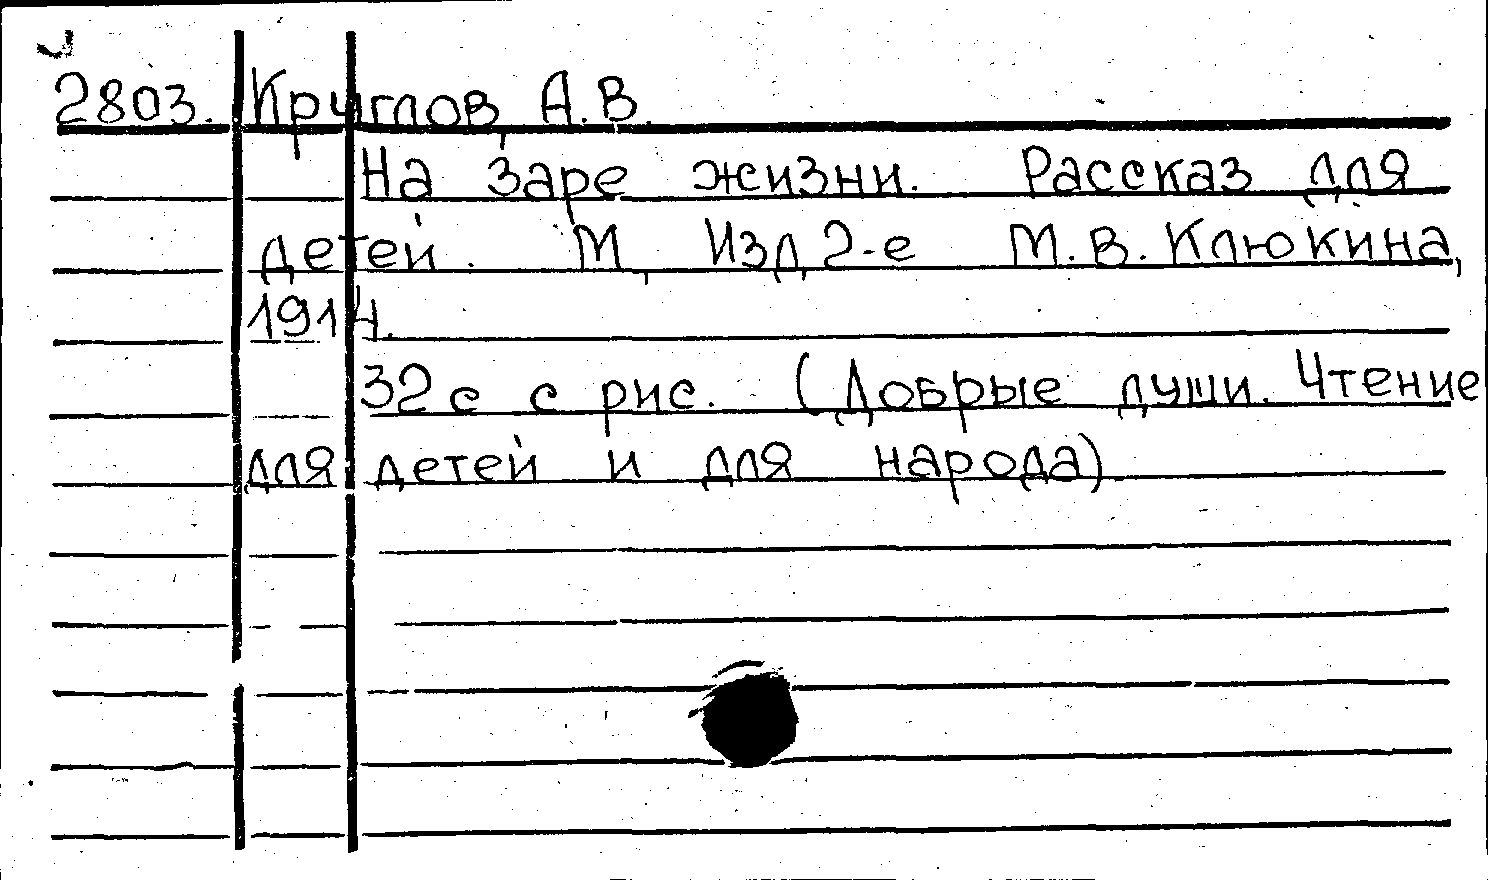 2803. Круглов, А.В.
На заре жизни. Рассказ для
детей. М, Изд, 2-е М.В. Клюкина,
1914.
32 с с рис. (Добрые души. Чтение
для детей и для народа).